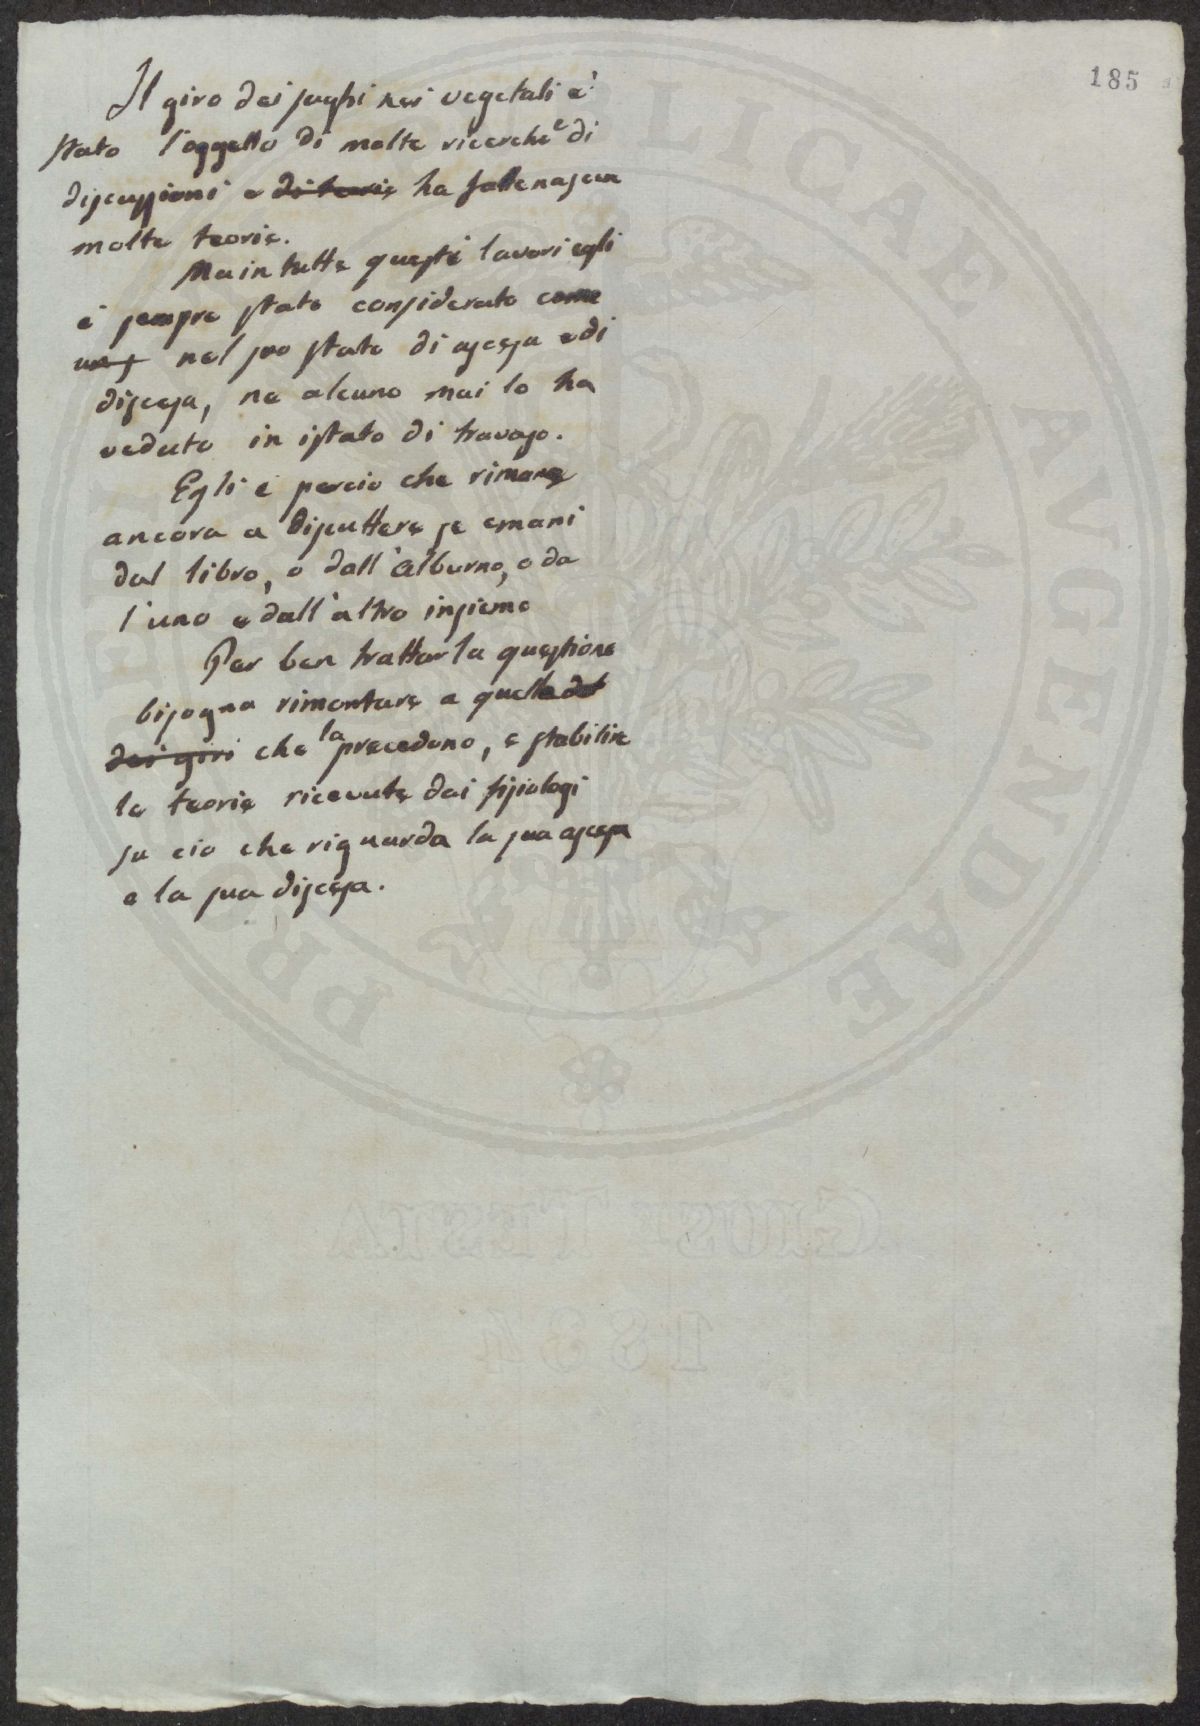 185
Il giro dei sughi nei vegetali è
stato l'oggetto di molte ricerche e di
discussioni e di teorie ha fatte nascere
molte teorie.
Ma in tutte questi lavori egli
è sempre stato considerato come
nel suo stato di ascesa e di
discesa, ne alcuno mai lo ha
veduto in istato di travaso.
Egli è percio che rimane
ancora a discuttere se emani
dal libro, o dall'alburno, o da
l'uno e dall'altro insieme
Per ben trattar la questione
bisogna rimontare a quelle
dei giri che la precedono, e stabilire
le teorie ricevute dai fisiologi
su cio che riguarda la sua ascesa
e la sua discesa.
PR LICAE AVGENDAE
GIUSE TESTA
1834